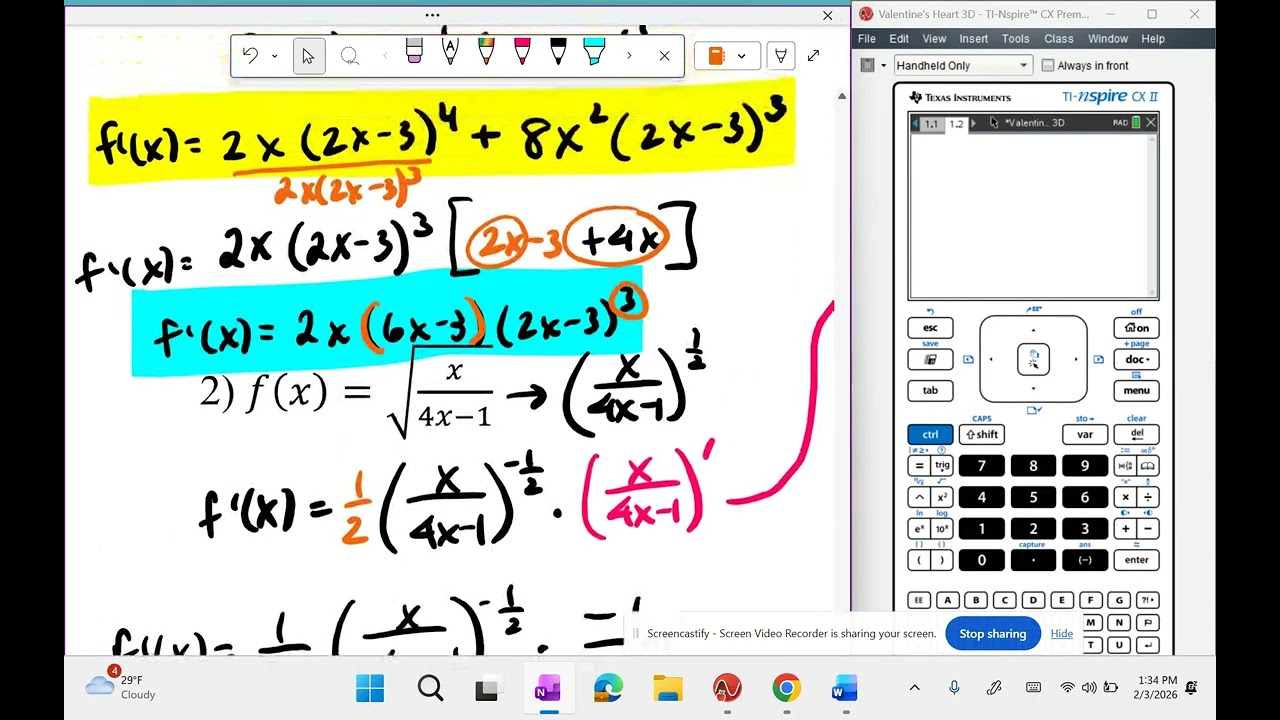 Valentine's Heart 3D - TI-Nspire™ CX Prem...
File Edit View Insert Tools Class Window Help
Handheld Only
Always in front
f'(x) = 2x (2x-3)^4 + 8x^2 (2x-3)^3
2x(2x-3)^3
f'(x) = 2x (2x-3)^3 [2x-3 +4x]
f'(x) = 2x (6x-3) (2x-3)^3
2) f(x) = √(x/(4x-1)) → (x/(4x-1))^(1/2)
f'(x) = 1/2 (x/(4x-1))^(-1/2) · (x/(4x-1))'
TEXAS INSTRUMENTS TI-nspire CX II
1.1 1.2 *Valentin.. 3D RAD
off
esc on
save + page
doc
tab menu
CAPS sto→ clear
ctrl shift var del
= trig 7 8 9
^ x² 4 5 6 × ÷
ln log
eˣ 10ˣ 1 2 3 + −
capture ans ≈
( ) 0 . (−) enter
EE A B C D E F G ?!
M N
T U
Screencastify - Screen Video Recorder is sharing your screen.
Stop sharing
Hide
4
29°F
Cloudy
1:34 PM
2/3/2026